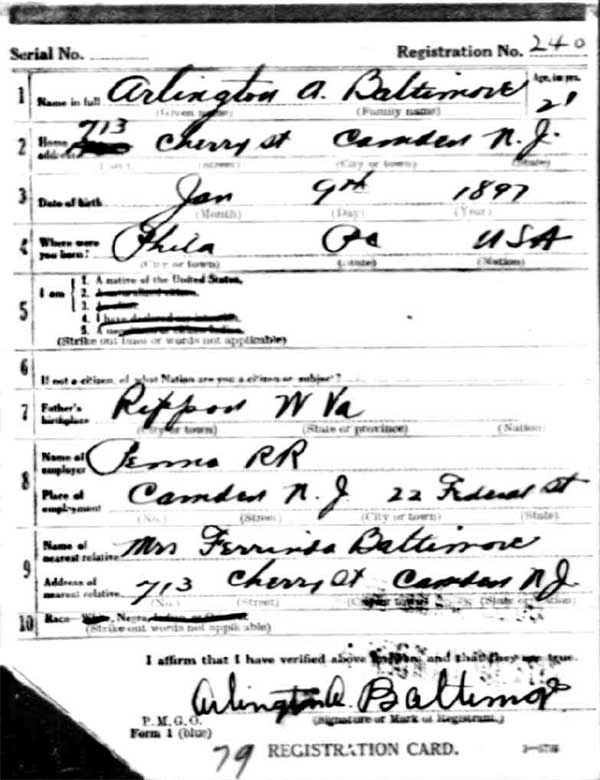 Serial No. Registration No. 240
1 Name in full Arlington A. Baltimore Age, in yrs. 21
(Given name) (Family name)
2 Home address 713 Cherry St Camden N. J.
(No.) (Street) (City or town) (State)
3 Date of birth Jan 9th 1897
(Month) (Day) (Year)
4 Where were you born? Phila Pa USA
(City or town) (State) (Nation)
5 I am 1. A native of the United States,
2.
3.
4. I have declared my intention
5. A
(Strike out lines or words not applicable)
6 If not a citizen, of what Nation are you a citizen or subject?
7 Father's birthplace Rippon W Va
(City or town) (State or province) (Nation)
8 Name of employer Penna RR
Place of employment Camden N. J. 22 Federal St
(No.) (Street) (City or town) (State)
9 Name of nearest relative Mrs Ferrinda Baltimore
Address of nearest relative 713 Cherry St Camden N J.
(No.) (Street) (State or nation)
10 Race White, Negro,
(Strike out words not applicable)
I affirm that I have verified above and that they are true.
Arlington A. Baltimore
P. M. G. O. (Signature or Mark of Registrant.)
Form 1 (blue)
79 REGISTRATION CARD.